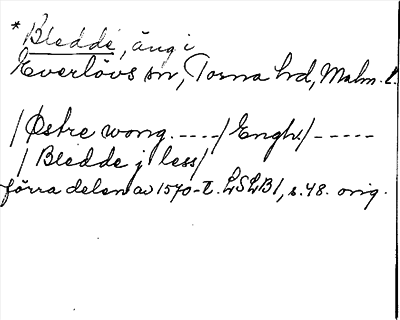 *Bledde, äng i
Everlövs sn, Torna hd, Malm. l.
/Østre wong. ----/Engh./-----
/Bledde j less/
förra delen av 1570-t. LSLB1, s.48. orig.